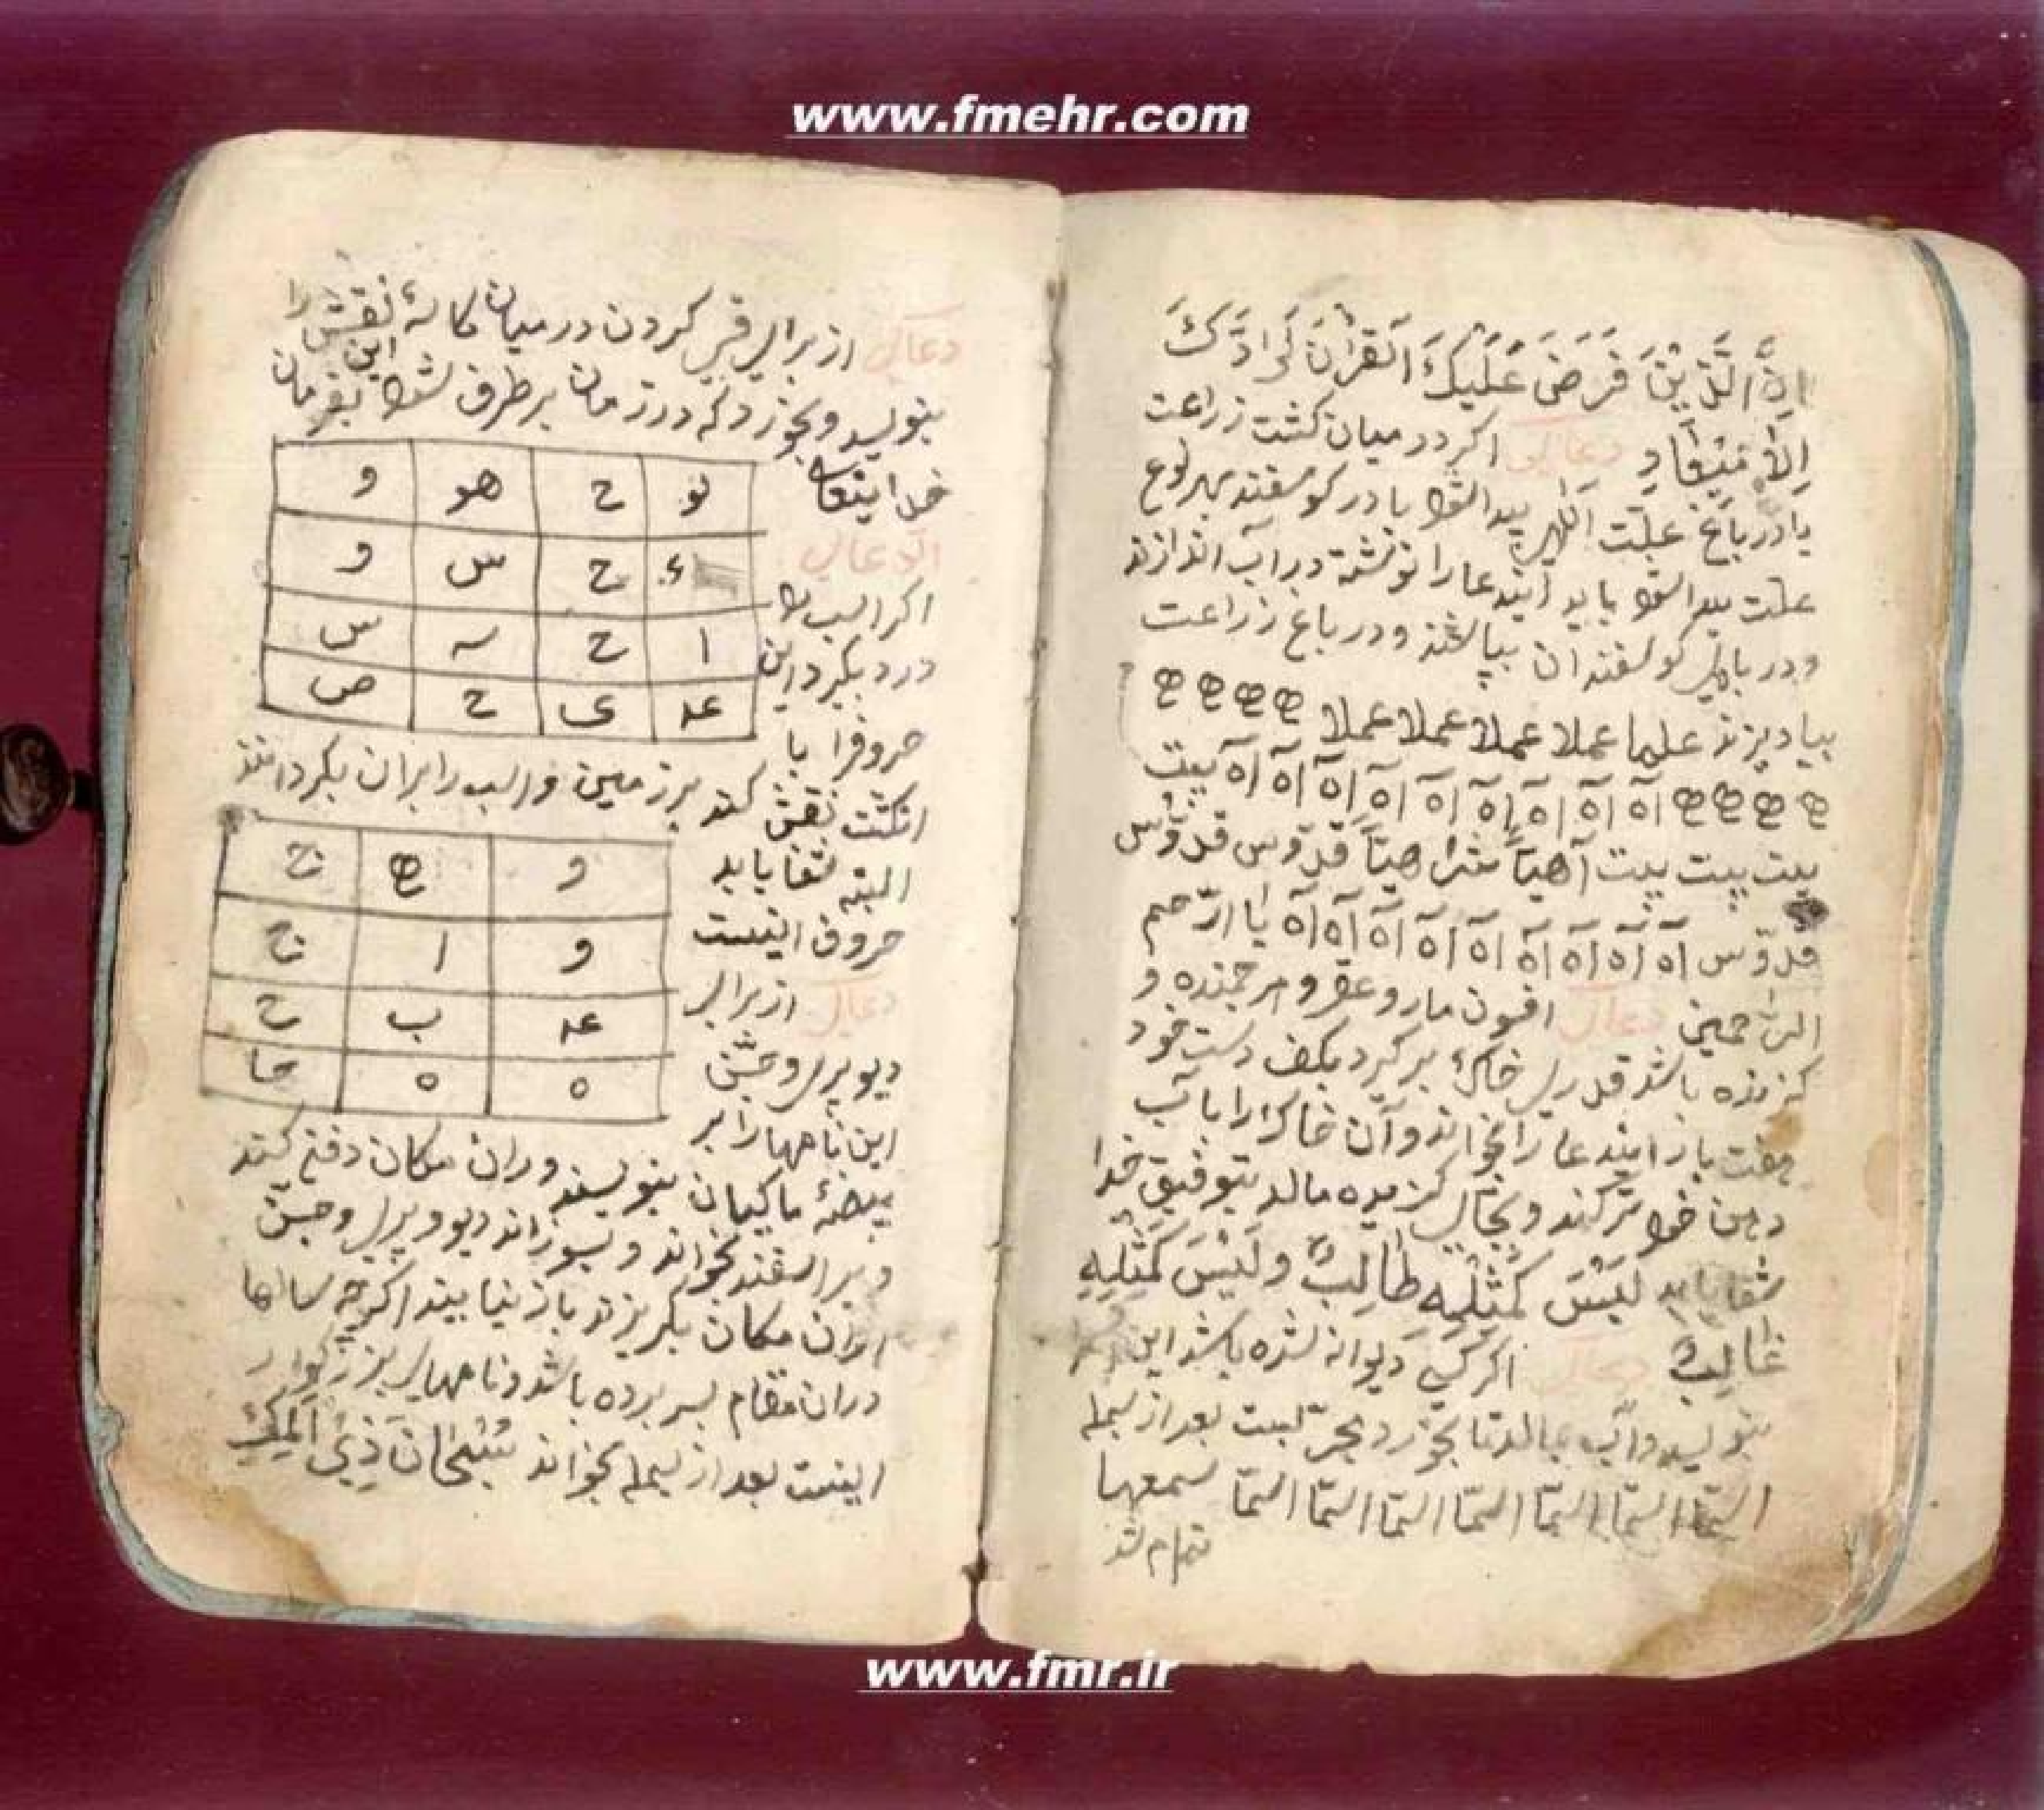 www.fmehr.com
اِنَّ الَّذِیْنَ فَرَضَ عَلَیْكَ الْقُرْاٰنَ لَرَادُّكَ
اِلیٰ مَیْعَادٍ دعائی اکر در میان کشت زراعت
یا در باغ علت پیدا شود یا در کوسفند بهر نوع
علت پیدا شود باید ایندعا را نوشته در آب اندازند
و در بالای کوسفندان بپاشند و در باغ زراعت
بیاویزند علما عملا عملا عملا عملا
آه آه آه آه آه آه آه آه آه بیت
بیت بیت بیت آهیاً شراهیاً قدّوس قدّوس
قدّوس آه آه آه آه آه آه آه آه آه یا ارحم
الراحمین دعائی افسون مار و عقرب و هر جنبنده و
کزنده باشد قدری خاک بر کیرد بکف دست خود
هفت بار ایندعا را بخواند و آن خاک را با آب
دهن خود تر کند و بجای کزیده مالد بتوفیق خدا
شفا یابد لَیْسَ كَمِثْلِهِ طٰالِبٌ وَ لَیْسَ كَمِثْلِهِ
غٰالِبٌ دعائی اکر کسی دیوانه شده باشد این
بنویسد و آب بمالد تا بخورد مجرّبست بعد از بسمله
السمّا السمّا السمّا السمّا السمّا السمّا السمّا سمعها
تمام شد
دعائی از برای کردن در میان کاسهٔ نقش را
بنویسد و بخورد که در زمان بر طرف شود این بفرمان
خدا اینقا
نو ح هو و
ء ح س و
ا ح س
عد ی ح ص
الدعائی
اکر اسب را
درد بکیرد این
حروف را با
انکشت نقش کند بر زمین و اسب را بران بکرداند
البته شفا یابد
حروف اینست
و ح
و ا ح
عد ب ح
ه ه حا
دعائی از برای
دیو پری و جن
این نامها را بر
بیضهٔ ماکیان بنویسند و دران مکان دفن کنند
و بر اسفند بخواند و بسوزاند دیو و پری و جن
ازان مکان بکریزند باز نیایند اکرچه سالها
دران مقام بسر برده باشد و نامهای بزرکوار
اینست بعد از بسمله بخواند سُبْحٰانَ ذِی الْمُلْكِ
www.fmr.ir